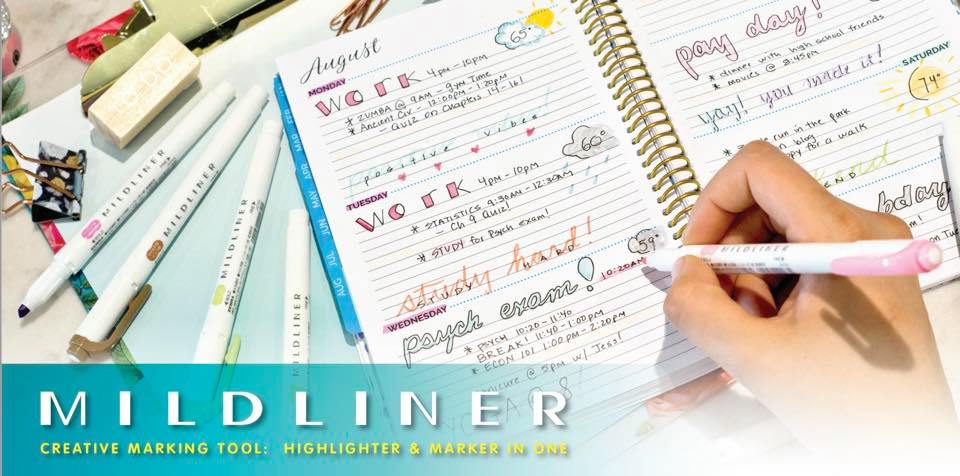 August
MONDAY
WORK 4PM - 10PM
* ZUMBA @ 9AM - gym Time
* Ancient Civ - 12:00PM - 1:20PM
- QUIZ on Chapters 14-16!
65°
positive vibes
TUESDAY
WORK 4PM - 10PM
60°
* STATISTICS 9:30AM - 12:30AM
- Ch 9 Quiz!
* STUDY for Psych exam!
study hard!
STUDY HARD
59°
WEDNESDAY
psych exam!
10:20AM
* PSYCH 10:20 - 11:40
BREAK! 11:40 - 1:00PM
* ECON 101 1:00PM - 2:20PM
manicure @ 5PM w/ Jess!
YOGA @ 8
pay day!
* dinner with high school friends
* movies @ 8:45PM
yay! you made it!
SATURDAY
74°
run in the park
blog
for a walk
END
bday
on Tue
MAR
APR
MAY
JUN
JUL
AUG
MILDLINER
MILDLINER
MILDLINER
MILDLINER
MILDLINER
MILDLINER
CREATIVE MARKING TOOL: HIGHLIGHTER & MARKER IN ONE